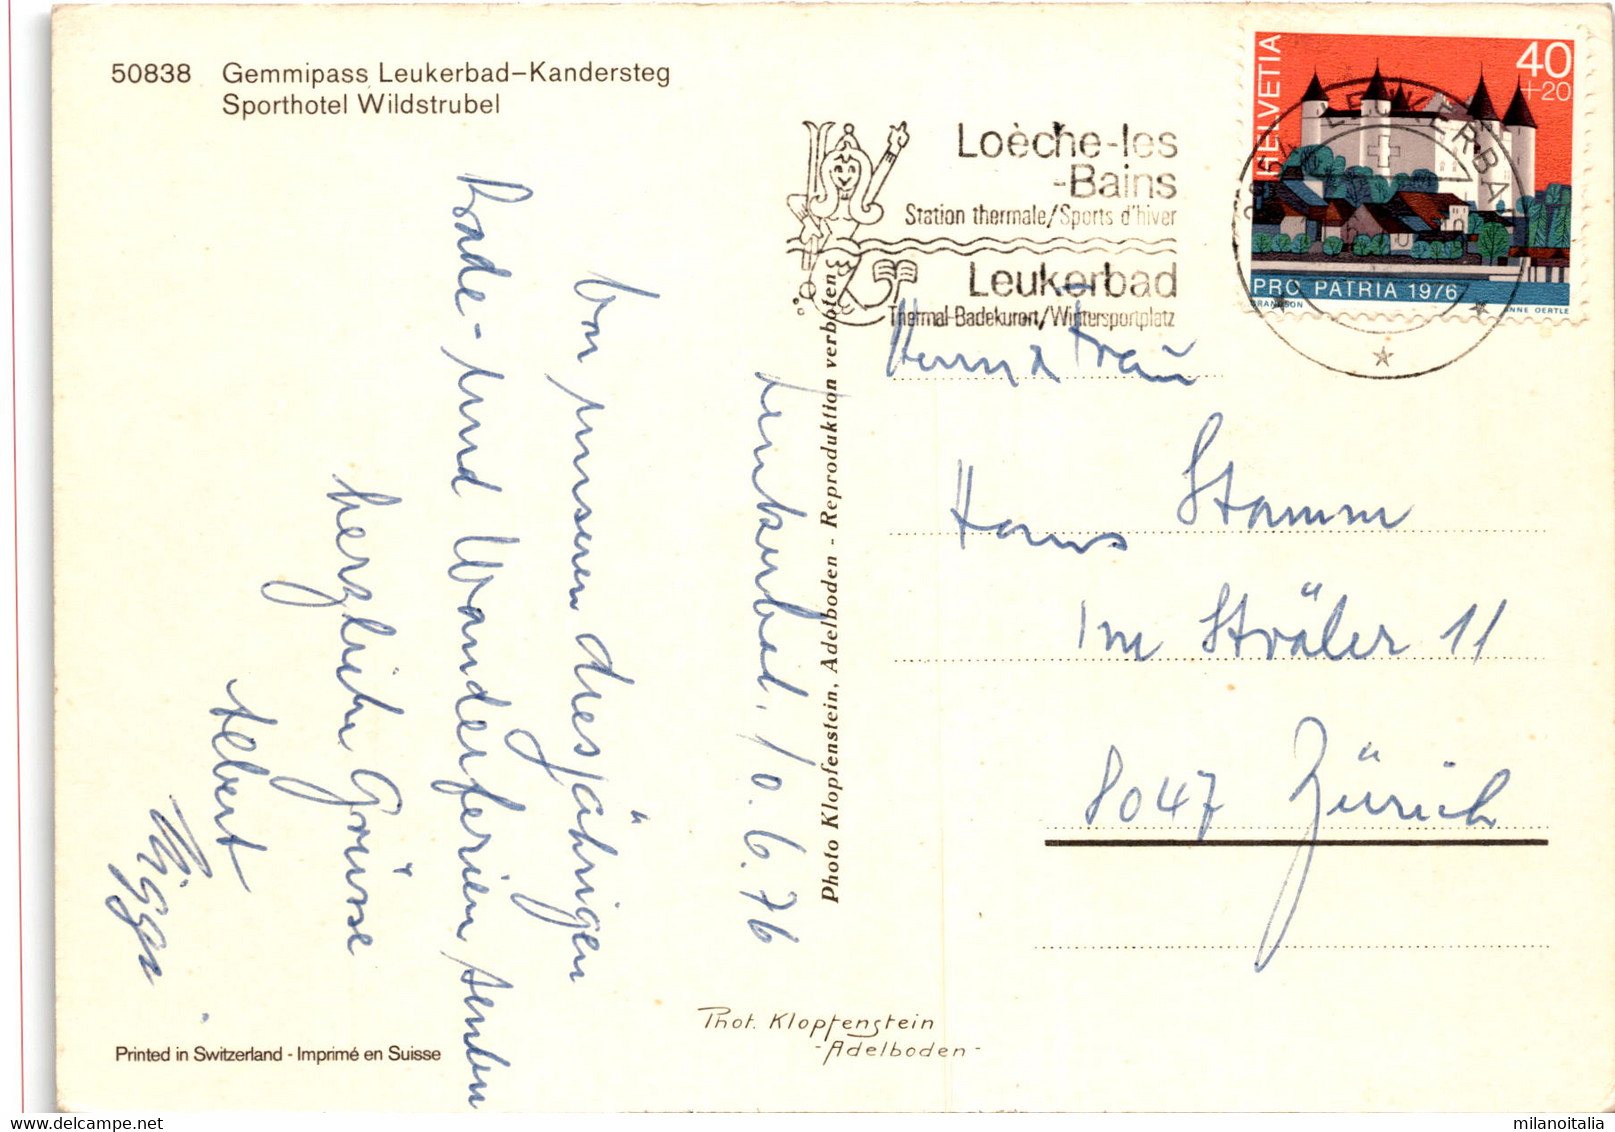 50838 Gemmipass Leukerbad–Kandersteg
Sporthotel Wildstrubel
Loèche-les
-Bains
Station thermale/Sports d'hiver
Leukerbad
Thermal-Badekurort/Wintersportplatz
HELVETIA
40
+20
PRO PATRIA 1976
GRANDSON
ANNE OERTLE
LEUKERBAD
Leukerbad, 10.6.76
Von unseren diesjährigen
Bade- und Wanderferien senden
herzliche Grüsse
Albert
Photo Klopfenstein, Adelboden - Reproduktion verboten
Herrn & Frau
Hans Stamm
Im Sträler 11
8047 Zürich
Phot. Klopfenstein
-Adelboden-
Printed in Switzerland - Imprimé en Suisse
milanoitalia